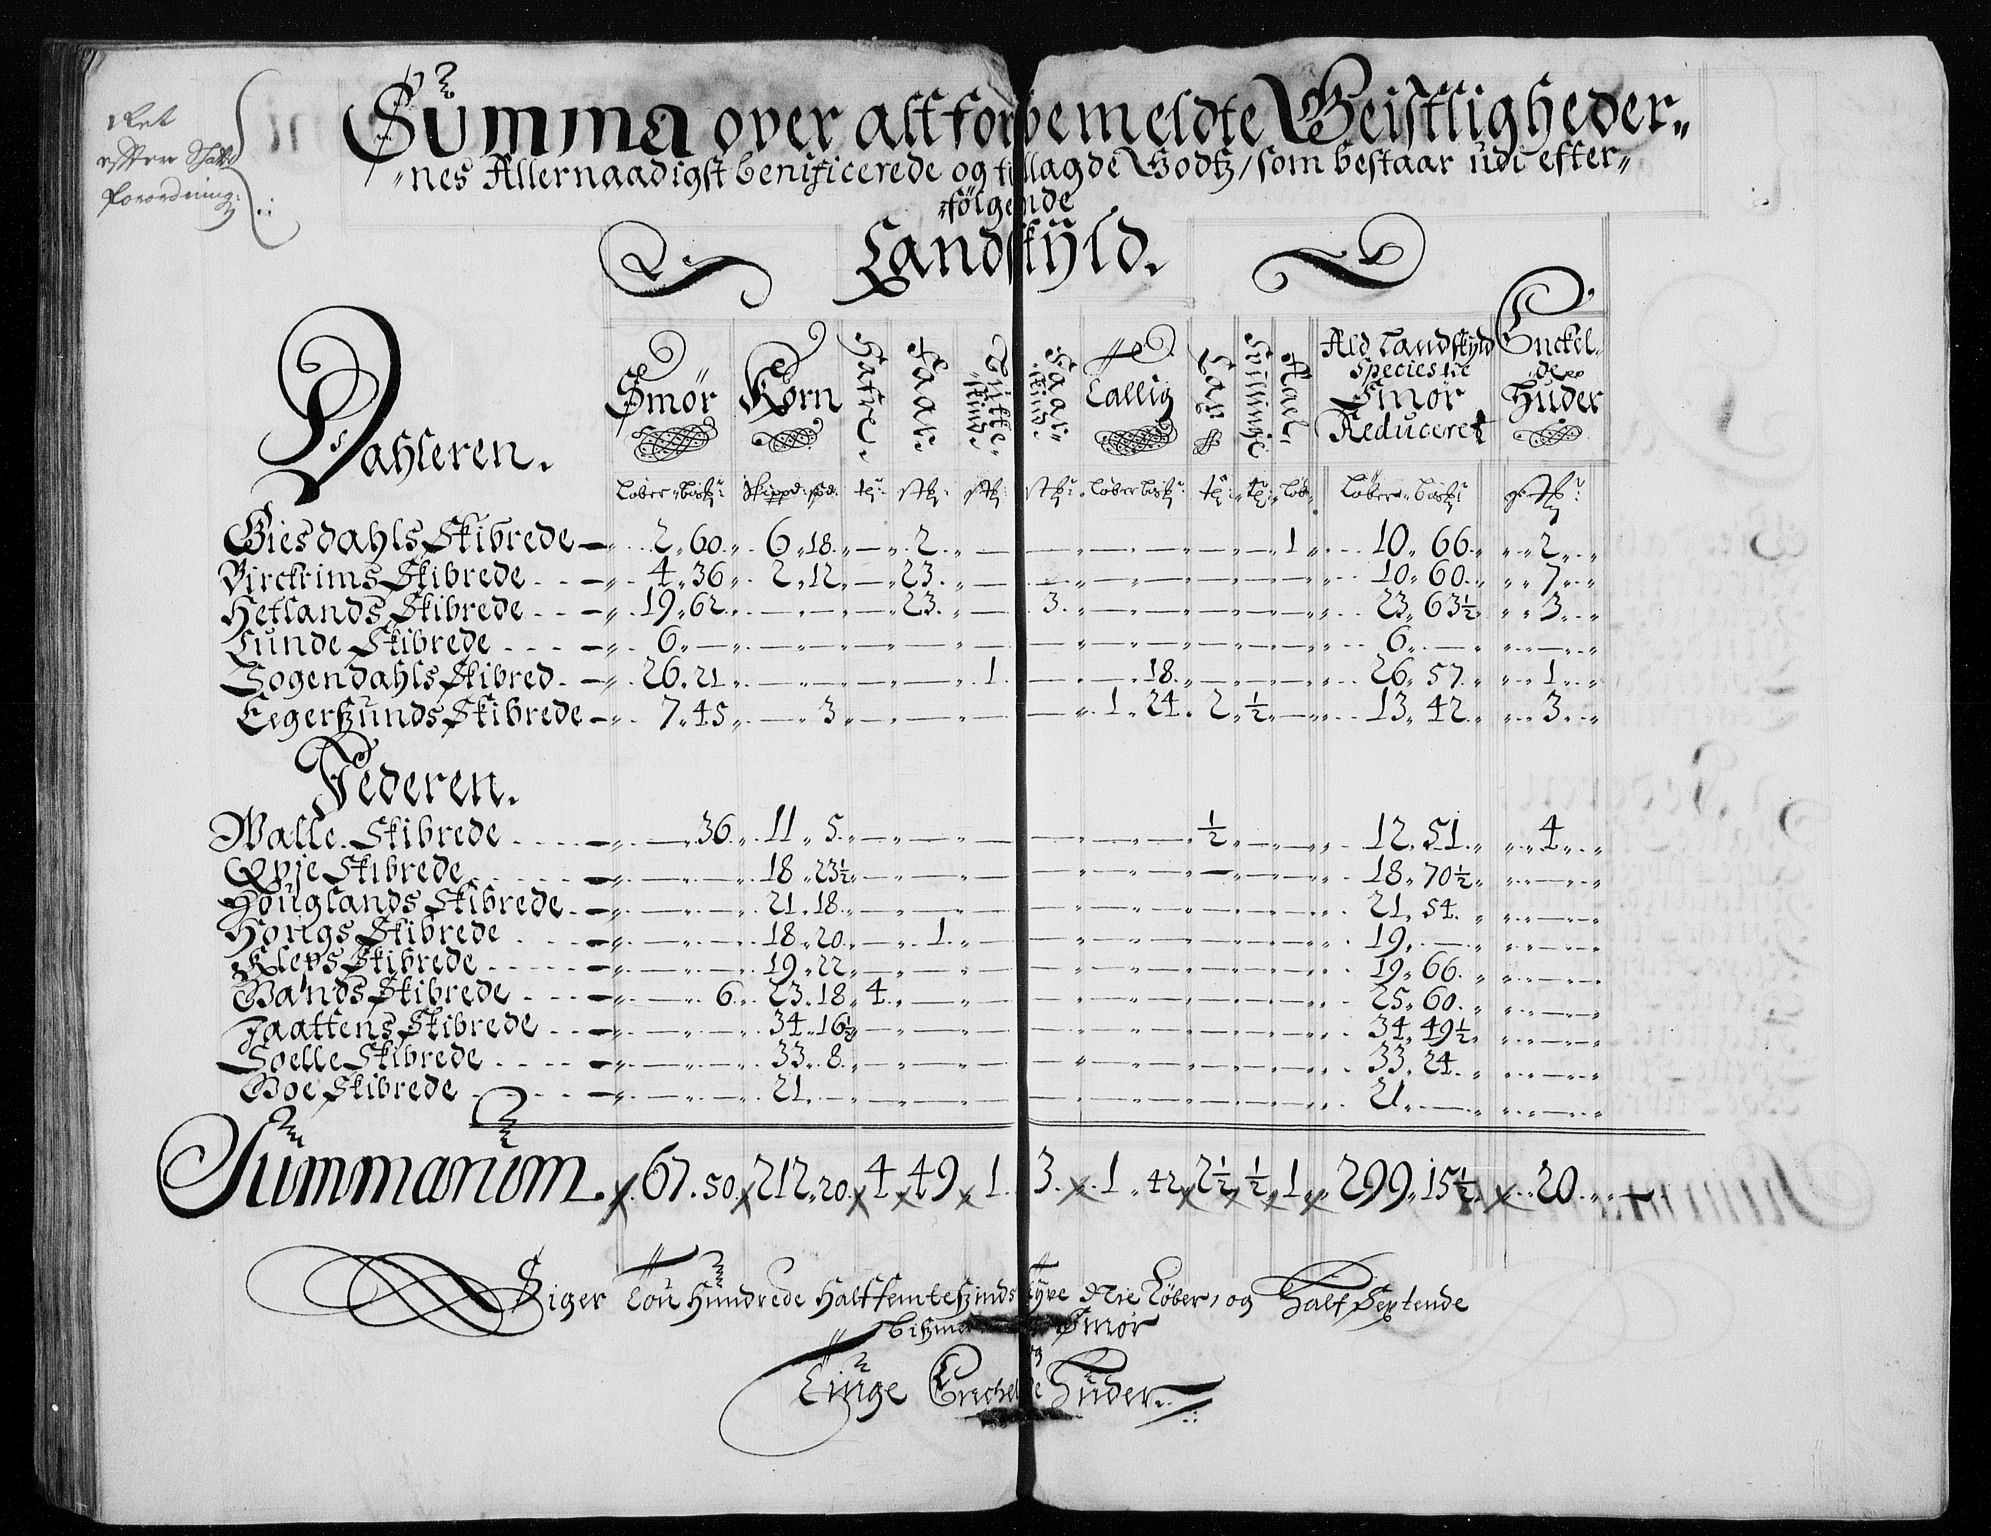 Ret
efter Skatte
Forordning:
Summa over alt forbemeldte Geistligheder„
„nes Allernaadigst benificerede og tillagde Godtz/ som bestaar udi efter„
„følgende
Landskÿld.
Dahleren.
Smør Korn Faar. Tallig Ald Landskyld Enckel„
Species til de
Smør Huder
Reduceret
Løber„ bißr: Skippd: sd: tr: stkr: stkr: stkr: Løber bißr: tr: tr: Løb Løber„ bißr stkr:
Giesdahls Skibrede 2„60 6„18 — 2 — — — — — 1 10„66 2
Birckrims Skibrede 4„36 2„12 — 23 — — — — — — 10„60 7
Hetlands Skibrede 19„62 — — 23 — 3 — — — — 23„63½ 3
Lunde Skibrede 6„— — — — — — — — — — 6„— —
Sogendahls Skibred 26„21 — — — 1 — 18 — — — 26„57 1
Eegerßunds Skibrede 7„45 — 3 — — — — 1„24 2 ½ — 13„42 3
Jederen.
Walle Skibrede — 36 11„5 — — — — — ½ — — 12„51 4
Qvie Skibrede — 18„23½ — — — — — — — — 18„70½ —
Houglands Skibrede — 21„18 — — — — — — — — 21„54 —
Hougs Skibrede — 18„20 — 1 — — — — — — 19„— —
Kleps Skibrede — 19„22 — — — — — — — — 19„66 —
Wands Skibrede — 6 23„18 4 — — — — — — — 25„60 —
Jaattens Skibrede — 34„16½ — — — — — — — — 34„49½ —
Soelle Skibrede — 33„8 — — — — — — — — 33„24 —
Boe Skibrede — 21„— — — — — — — — — 21„— —
Summarum. 67„50 212„20 4 49 1 3 1„42 2½ ½ 1 299„15½ 20
Siger Tou Hundrede Halffemteßindstyve Nie Løber, og Half Sextende
Smør
og
Tiuge Enchelde Huder